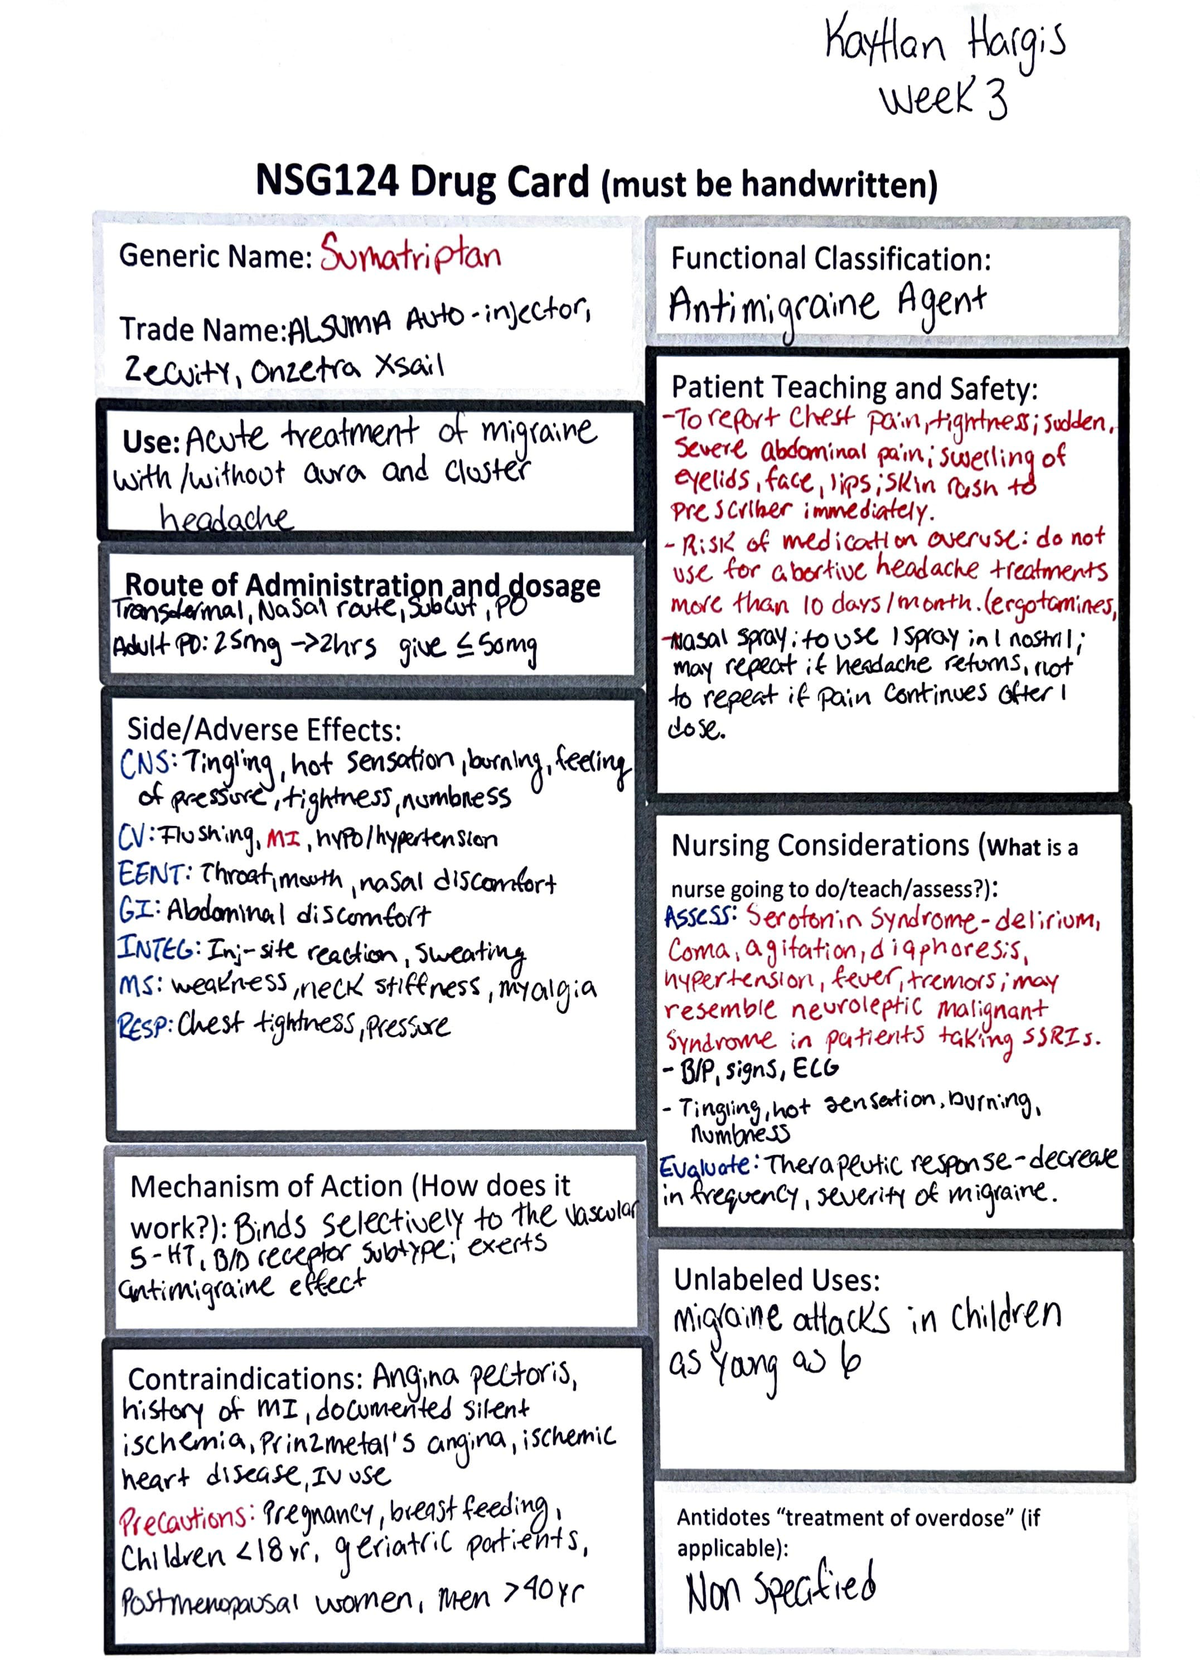 Kaytlan Hargis
Week 3
NSG124 Drug Card (must be handwritten)
Generic Name: Sumatriptan
Trade Name:ALSUMA Auto-injector,
Zecuity, Onzetra Xsail
Use: Acute treatment of migraine
with/without aura and cluster
headache
Route of Administration and dosage
Transdermal, Nasal route, Subcut, PO
Adult PO: 25mg →2hrs give ≤50mg
Side/Adverse Effects:
CNS: Tingling, hot sensation, burning, feeling
of pressure, tightness, numbness
CV: Flushing, MI, hypo/hypertension
EENT: Throat, mouth, nasal discomfort
GI: Abdominal discomfort
INTEG: Inj-site reaction, sweating
MS: weakness, neck stiffness, myalgia
RESP: Chest tightness, pressure
Mechanism of Action (How does it
work?): Binds selectively to the vascular
5-HT, B/D receptor subtype; exerts
antimigraine effect
Contraindications: Angina pectoris,
history of MI, documented silent
ischemia, Prinzmetal's angina, ischemic
heart disease, IV use
Precautions: Pregnancy, breast feeding,
Children <18 yr, geriatric patients,
Postmenopausal women, men >40yr
Functional Classification:
Antimigraine Agent
Patient Teaching and Safety:
-To report Chest pain, tightness; sudden,
severe abdominal pain; swelling of
eyelids, face, lips; skin rash to
prescriber immediately.
- Risk of medication overuse: do not
use for abortive headache treatments
more than 10 days/month. (ergotamines,
-Nasal spray: to use 1 spray in 1 nostril;
may repeat if headache returns, not
to repeat if pain continues after 1
dose.
Nursing Considerations (What is a
nurse going to do/teach/assess?):
Assess: Serotonin Syndrome-delirium,
Coma, agitation, diaphoresis,
hypertension, fever, tremors; may
resemble neuroleptic malignant
syndrome in patients taking SSRIs.
- B/P, signs, ECG
- Tingling, hot sensation, burning,
numbness
Evaluate: Therapeutic response-decrease
in frequency, severity of migraine.
Unlabeled Uses:
Migraine attacks in children
as young as 6
Antidotes “treatment of overdose” (if
applicable):
Non specified